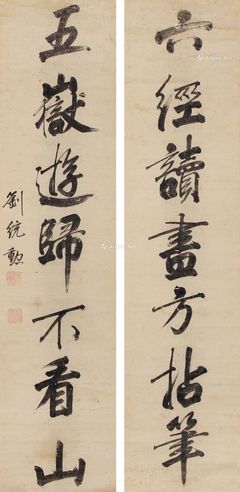 六經讀盡方拈筆
五嶽遊歸不看山
劉統勳